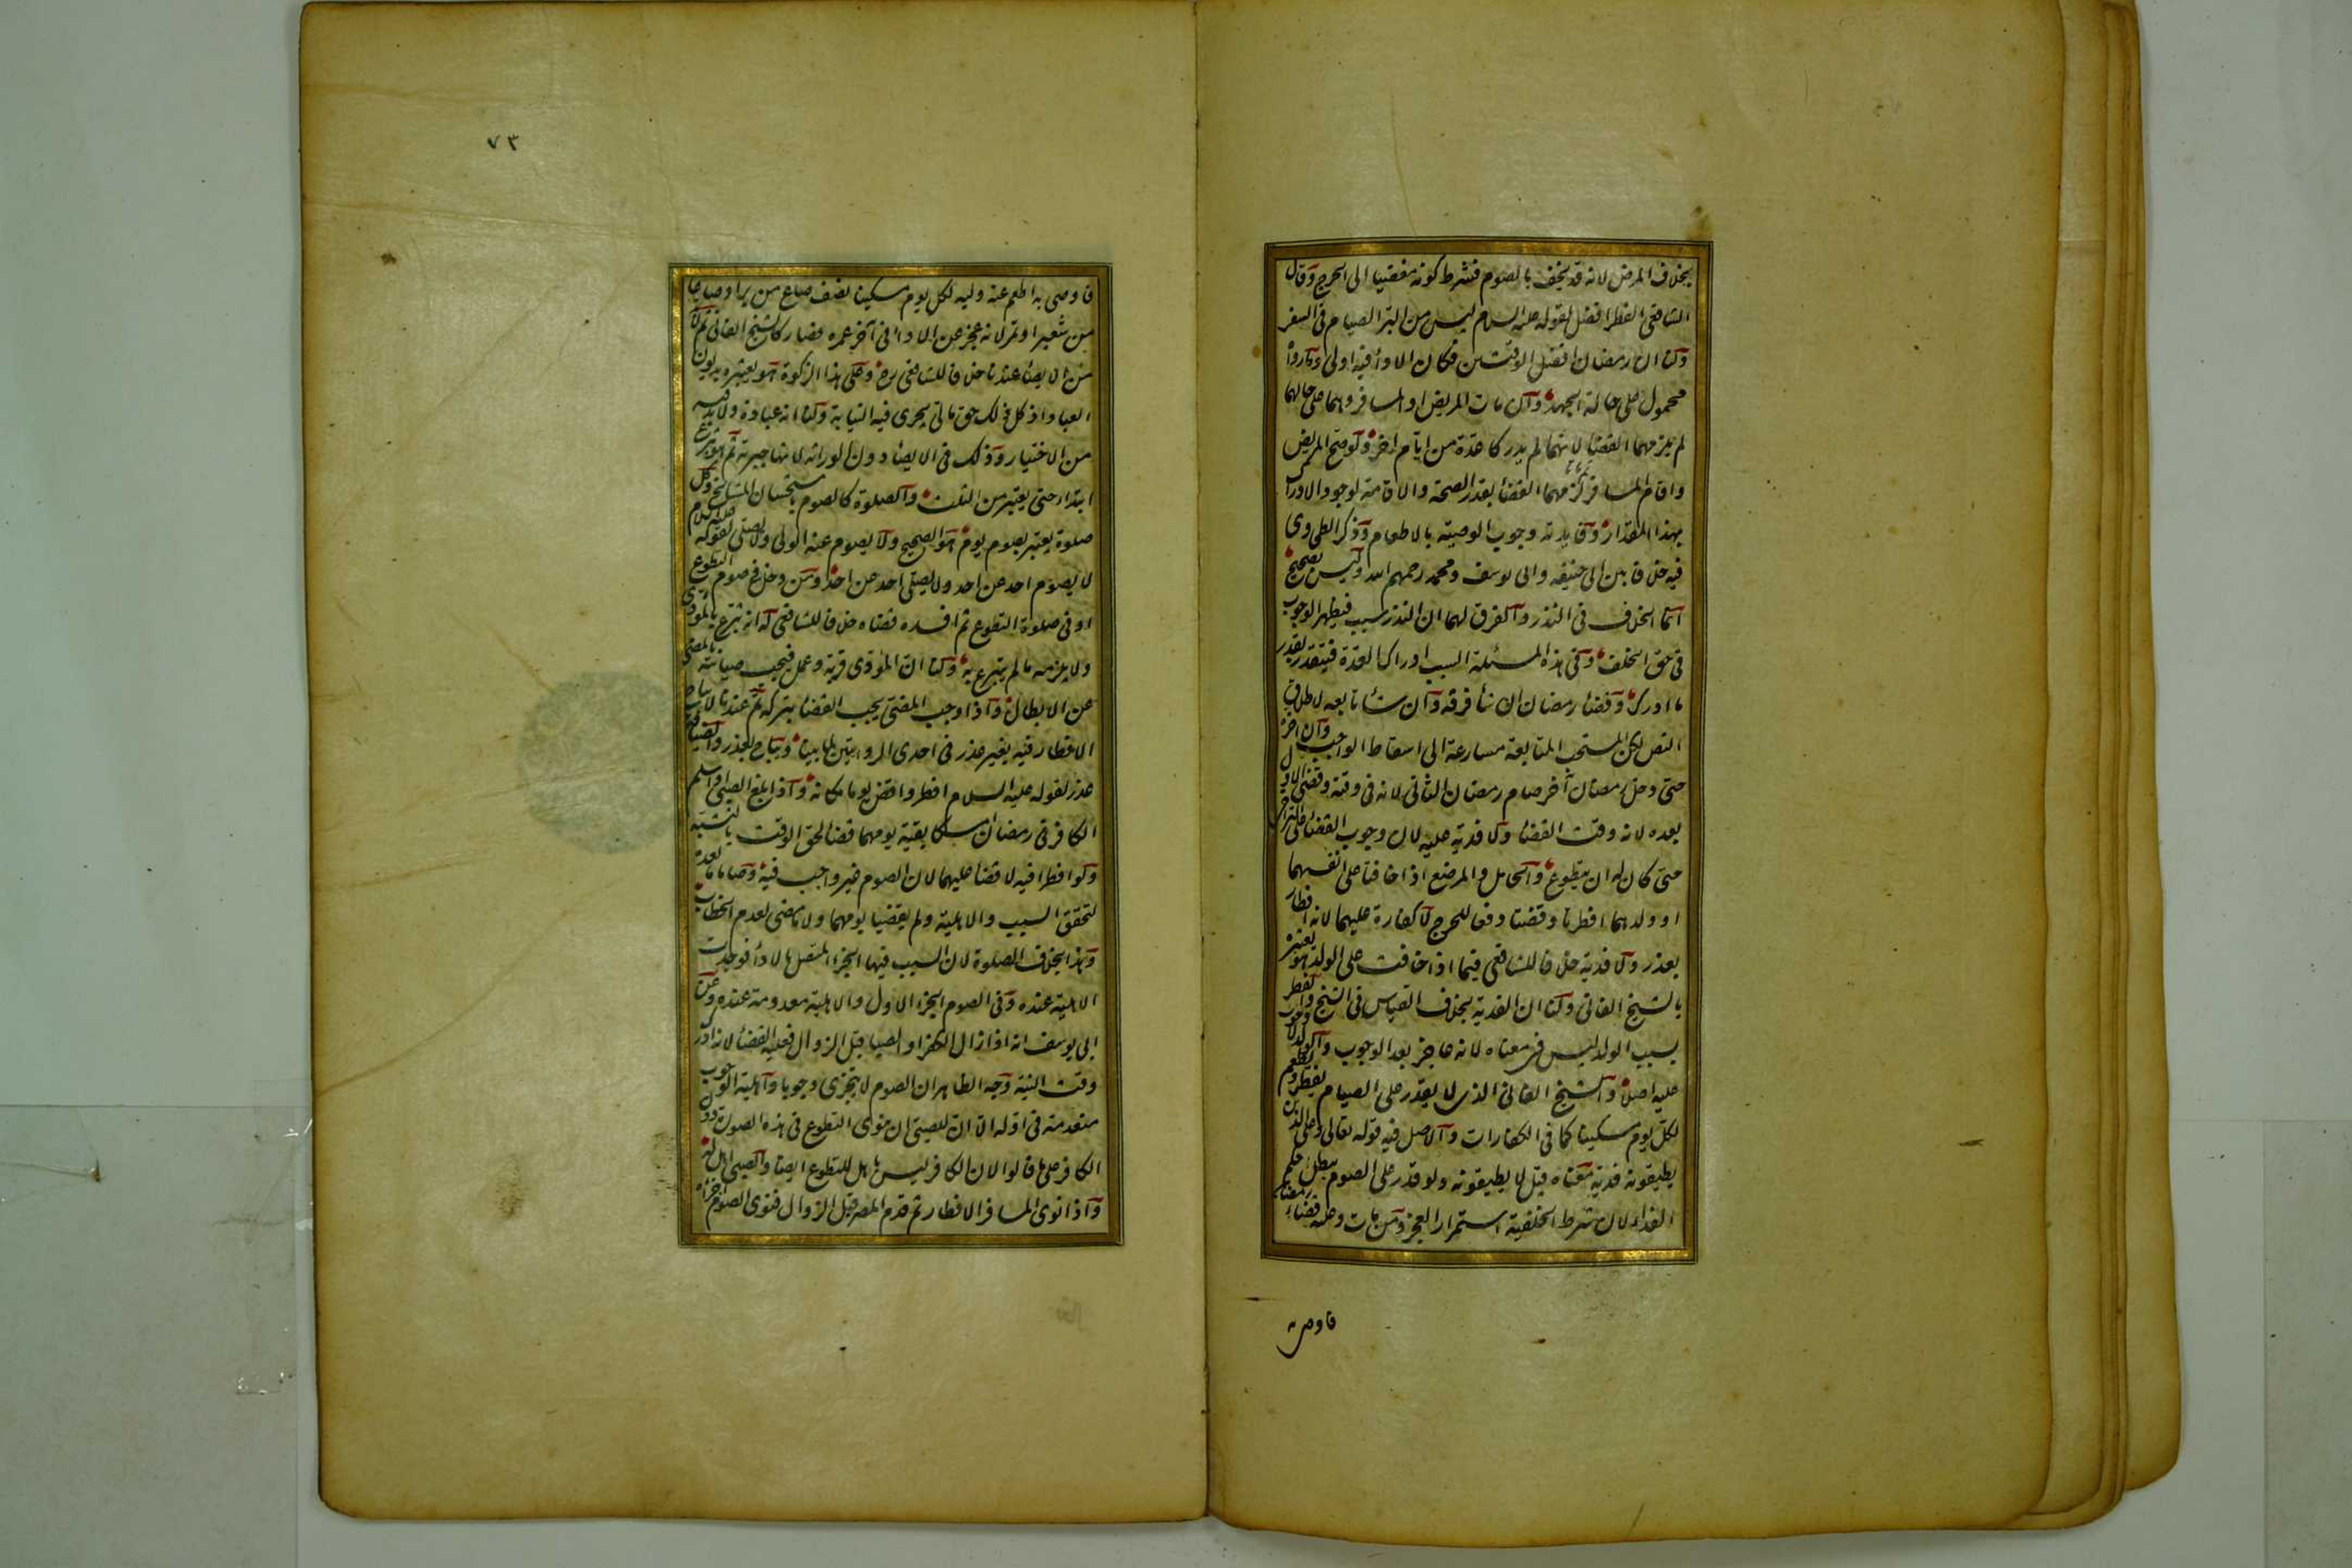 بخلاف المرض لانه قد يخف بالصوم فشرط كونه مفضيا الى الحرج وقال
الشافعى الفطر افضل لقوله عليه السلام ليس من البر الصيام فى السفر
ولنا ان رمضان افضل الوقتين فكان الاداء فيه اولى وما رواه
محمول على حالة الجهد وان مات المريض او المسافر وهما على حالهما
لم يلزمهما القضاء لانهما لم يدركا عدة من ايام اخر ولو صح المريض
واقام المسافر ثم ماتا لزمهما القضاء بقدر الصحة والاقامة لوجود الادراك
بهذا المقدار وفائدته وجوب الوصية بالاطعام وذكر الطحاوى
فيه خلافا بين ابى حنيفه وابى يوسف ومحمد رحمهم الله وليس بصحيح
انما الخلاف فى النذر والفرق لهما ان النذر سبب فيظهر الوجوب
فى حق الخلف وفى هذه المسئلة السبب ادراك العدة فيتقدر بقدر
ما ادرك وقضاء رمضان ان شاء فرقه وان شاء تابعه لاطلاق
النص لكن المستحب المتابعة مسارعة الى اسقاط الواجب وان اخره
حتى دخل رمضان آخر صام رمضان الثانى لانه فى وقته وقضى الاول
بعده لانه وقت القضاء ولا فدية عليه لان وجوب القضاء على التراخى
حتى كان له ان يتطوع والحامل والمرضع اذا خافتا على انفسهما
او ولدهما افطرتا وقضتا دفعا للحرج لا كفارة عليهما لانه افطار
بعذر ولا فدية خلافا للشافعى فيما اذا خافت على الولد هو يعتبره
بالشيخ الفانى ولنا ان الفدية بخلاف القياس فى الشيخ والفطر
بسبب الولد ليس فى معناه لانه عاجز بعد الوجوب والولد لا وجوب
عليه اصلا والشيخ الفانى الذى لا يقدر على الصيام يفطر ويطعم
لكل يوم مسكينا كما فى الكفارات والاصل فيه قوله تعالى وعلى الذين
يطيقونه فدية معناه قيل لا يطيقونه ولو قدر على الصوم يبطل حكم
الفداء لان شرط الخلفية استمرار العجز ومن مات وعليه قضاء رمضان
فاوصى به
٧٣
فاوصى به اطعم عنه وليه لكل يوم مسكينا نصف صاع من بر او صاعا
من شعير او تمر لانه عجز عن الاداء فى آخر عمره فصار كالشيخ الفانى ثم لا بد
من الايصاء عندنا خلافا للشافعى رح وعلى هذا الزكوة هو يعتبره بديون
العباد اذ كل ذلك حق مالى يجرى فيه النيابة ولنا انه عبادة ولا بد فيه
من الاختيار وذلك فى الايصاء دون الوراثة لانها جبرية ثم هو تبرع
ابتداء حتى يعتبر من الثلث والصلوة كالصوم باستحسان المشايخ وكل
صلوة يعتبر بصوم يوم هو الصحيح ولا يصوم عنه الولى ولا يصلى لقوله عليه السلام
لا يصوم احد عن احد ولا يصلى احد عن احد ومن دخل فى صوم التطوع
او فى صلوة التطوع ثم افسده قضاه خلافا للشافعى له انه تبرع بالمؤدى
ولا يلزمه ما لم يتبرع به ولنا ان المؤدى قربة وعمل فيجب صيانته بالمضى
عن الابطال واذا وجب المضى يجب القضاء بتركه ثم عندنا لا يباح
الافطار فيه بغير عذر فى احدى الروايتين لما بينا ويباح بعذر والضيافة
عذر لقوله عليه السلام افطر واقض يوما مكانه واذا بلغ الصبى او اسلم
الكافر فى رمضان امسكا بقية يومهما قضاء لحق الوقت بالتشبه
ولو افطرا فيه لا قضاء عليهما لان الصوم غير واجب فيه وصاما ما بعده
لتحقق السبب والاهلية ولم يقضيا يومهما ولا ما مضى لعدم الخطاب
وهذا بخلاف الصلوة لان السبب فيها الجزء المتصل بالاداء فوجدت
الاهلية عنده وفى الصوم الجزء الاول والاهلية معدومة عنده وعن
ابى يوسف انه اذا زال الكفر او الصبا قبل الزوال فعليه القضاء لانه ادرك
وقت النية وجه الظاهر ان الصوم لا يتجزى وجوبا واهلية الوجوب
منعدمة فى اوله الا ان للصبى ان ينوى التطوع فى هذه الصورة دون
الكافر على ما قالوا لان الكافر ليس باهل للتطوع ايضا والصبى اهل له
واذا نوى المسافر الافطار ثم قدم المصر قبل الزوال فنوى الصوم اجزاه